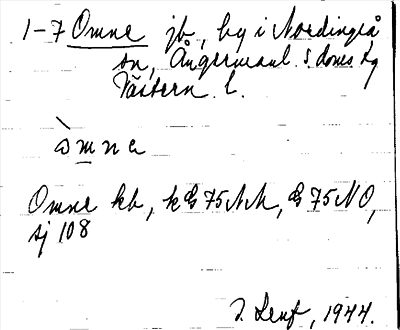 1-7 Omne jb, by i Nordingrå
sn, Ångermanl. s. doms. hg
Västern. l.
òmne
Omne kb, k G 75 NM, G 75 NO,
sj 108
1944.